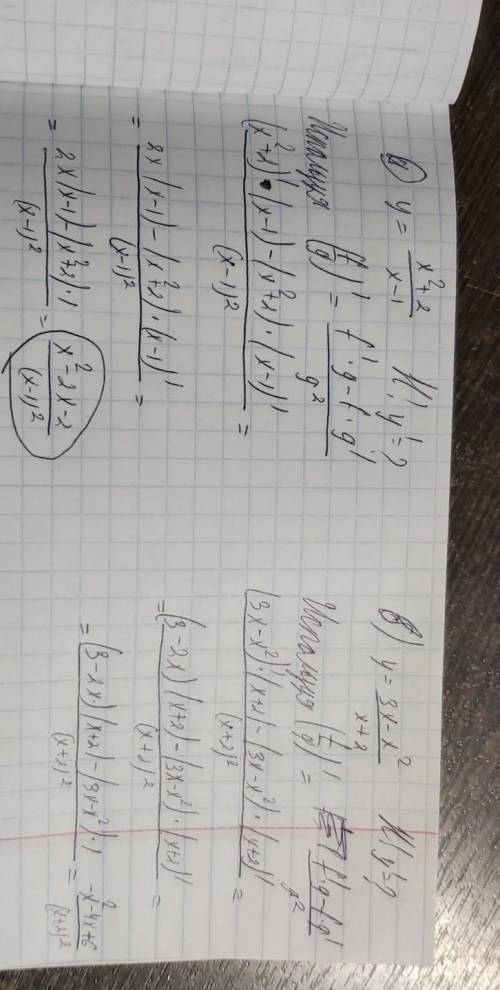 б) y = (x²+2)/(x-1) Н! y'=?
Используя (f/g)' = (f'·g-f·g')/g²
((x²+2)'·(x-1)-(x²+2)·(x-1)')/(x-1)² =
= (2x(x-1)-(x²+2)·(x-1)')/(x-1)² =
= (2x(x-1)-(x²+2)·1)/(x-1)² = (x²-2x-2)/(x-1)²
в) y = (3x-x²)/(x+2) Н! y'=?
Используя (f/g)' = (f'·g-f·g')/g²
((3x-x²)'·(x+2)-(3x-x²)·(x+2)')/(x+2)² =
= ((3-2x)(x+2)-(3x-x²)·(x+2)')/(x+2)² =
= ((3-2x)·(x+2)-(3x-x²)·1)/(x+2)² = (-x²-4x+6)/(x+2)²